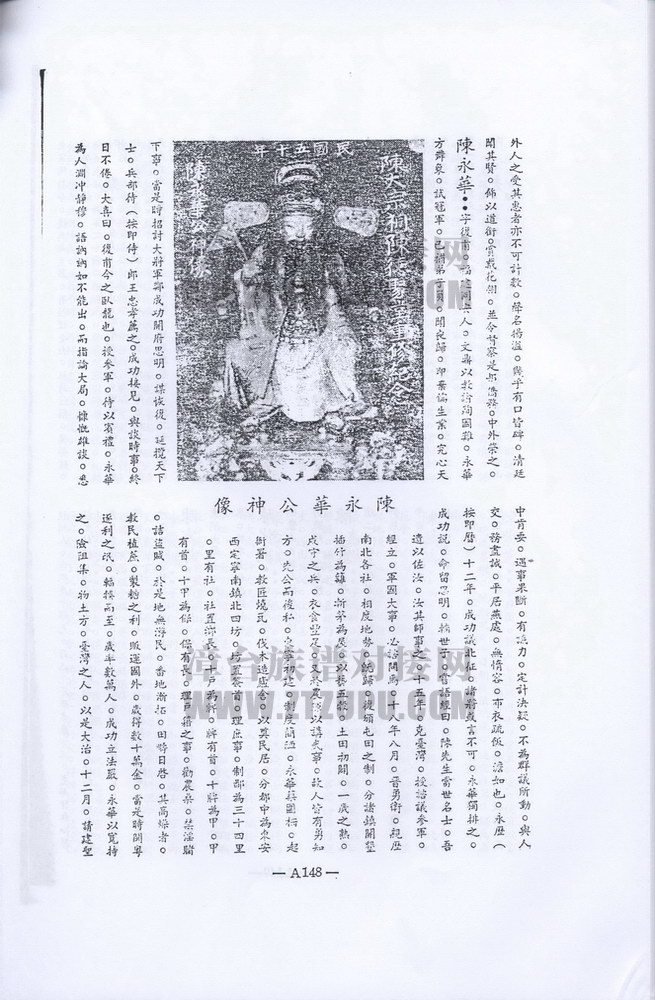 外人之受其惠者亦不可計數。聲名揚溢。幾乎有口皆碑。清廷
聞其賢。錫以道銜。賞戴花翎。並令督察是邦僑務。中外榮之。
陳永華：字復甫。福建同安人。文舉以教諭殉國難。永華
方舞象。試冠軍。已補弟子員。聞喪歸。即棄儒生業。究心天
民國五十年
陳大宗祠陳德聚堂重修紀念
陳永華公神像
下事。當是時招討大將軍鄭成功開府思明。謀恢復。延攬天下
士。兵部侍（按即侍）郎王忠孝薦之。成功接見。與談時事。終
日不倦。大喜曰。復甫今之臥龍也。授參軍。待以賓禮。永華
為人淵沖靜穆。語訥訥如不能出。而指論大局。慷慨雄談。悉
陳永華公神像
中肯要。遇事果斷。有定力。定計決疑。不為群議所動。與人
交。務盡誠。平居燕處。無惰容。布衣疏飯。澹如也。永歷（
按即曆）十二年。成功議北征。諸將或言不可。永華獨排之。
成功說。命留思明。輔世子。嘗語經曰。陳先生當世名士。吾
遺以佐汝。汝其師事之。十五年。克臺灣。授諮議參軍。
經立。軍國大事。必諮問焉。十八年八月。晉勇衛。親歷
南北各社。相度地勢。既歸。復頒屯田之制。分諸鎮開墾
插竹為籬。斬茅為屋。以藝五穀。土田初闢。一歲之熟。
戍守之兵。衣食豐足。又於農隙以講武事。故人皆有勇知
方。先公而後私。東寧初建。制度簡陋。永華築圍柵。起
衙署。教匠燒瓦。伐木造廬舍。以奠民居。分都中為東安
西定寧南鎮北四坊。坊置簽首。理庶事。制鄙為三十四里
。里有社。社置鄉長。十戶為牌。牌有首。十牌為甲。甲
有首。十甲為保。保有長。理戶籍之事。勸農桑。禁淫賭
。詰盜賊。於是地無游民。番地漸拓。田疇日啓。其高燥者。
教民植蔗。製糖之利。販運國外。歲得數十萬金。當是時閩粵
逐利之氓。輻輳而至。歲率數萬人。成功立法嚴。永華以寬持
之。險阻集。物土方。臺灣之人。以是大治。十二月。請建聖
— A148 —
漳台族谱对接网
WWW.ZTZUPU.COM